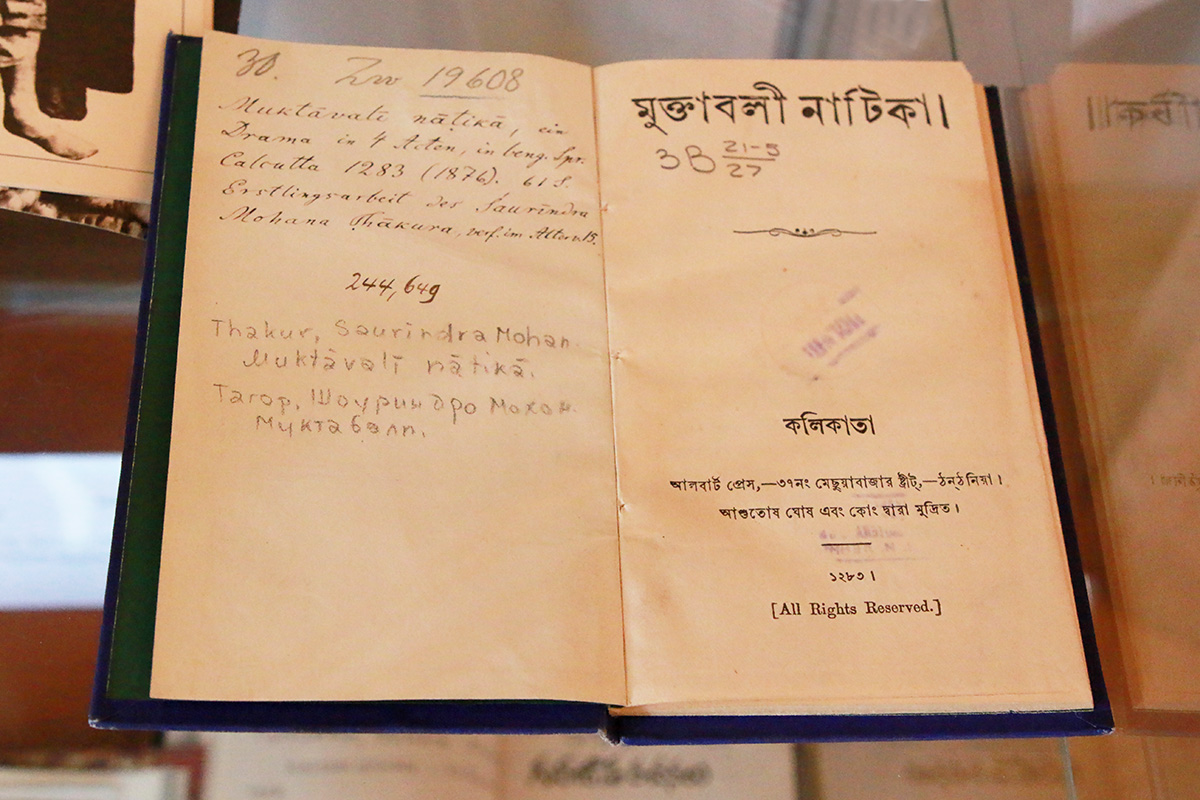 30. Inv 19608
Muktāvalī nāṭikā, ein
Drama in 4 Acten, in beng. Spr.
Calcutta 1283 (1876). 61 S.
Erstlingsarbeit des Saurīndra
Mohana Ṭhākura, verf. im Alter v. 15.
244,649
Thakur, Saurindra Mohan.
Muktāvalī nātikā.
Тагор, Шоуриндро Мохон.
Муктабали.
মুক্তাবলী নাটিকা।
3B 21-5
27
কলিকাতা
আলবার্ট প্রেস,—৩৭নং মেছুয়াবাজার ষ্ট্রীট্,—ঠন্‌ঠনিয়া।
আশুতোষ ঘোষ এবং কোং দ্বারা মুদ্রিত।
১২৮৩।
[All Rights Reserved.]